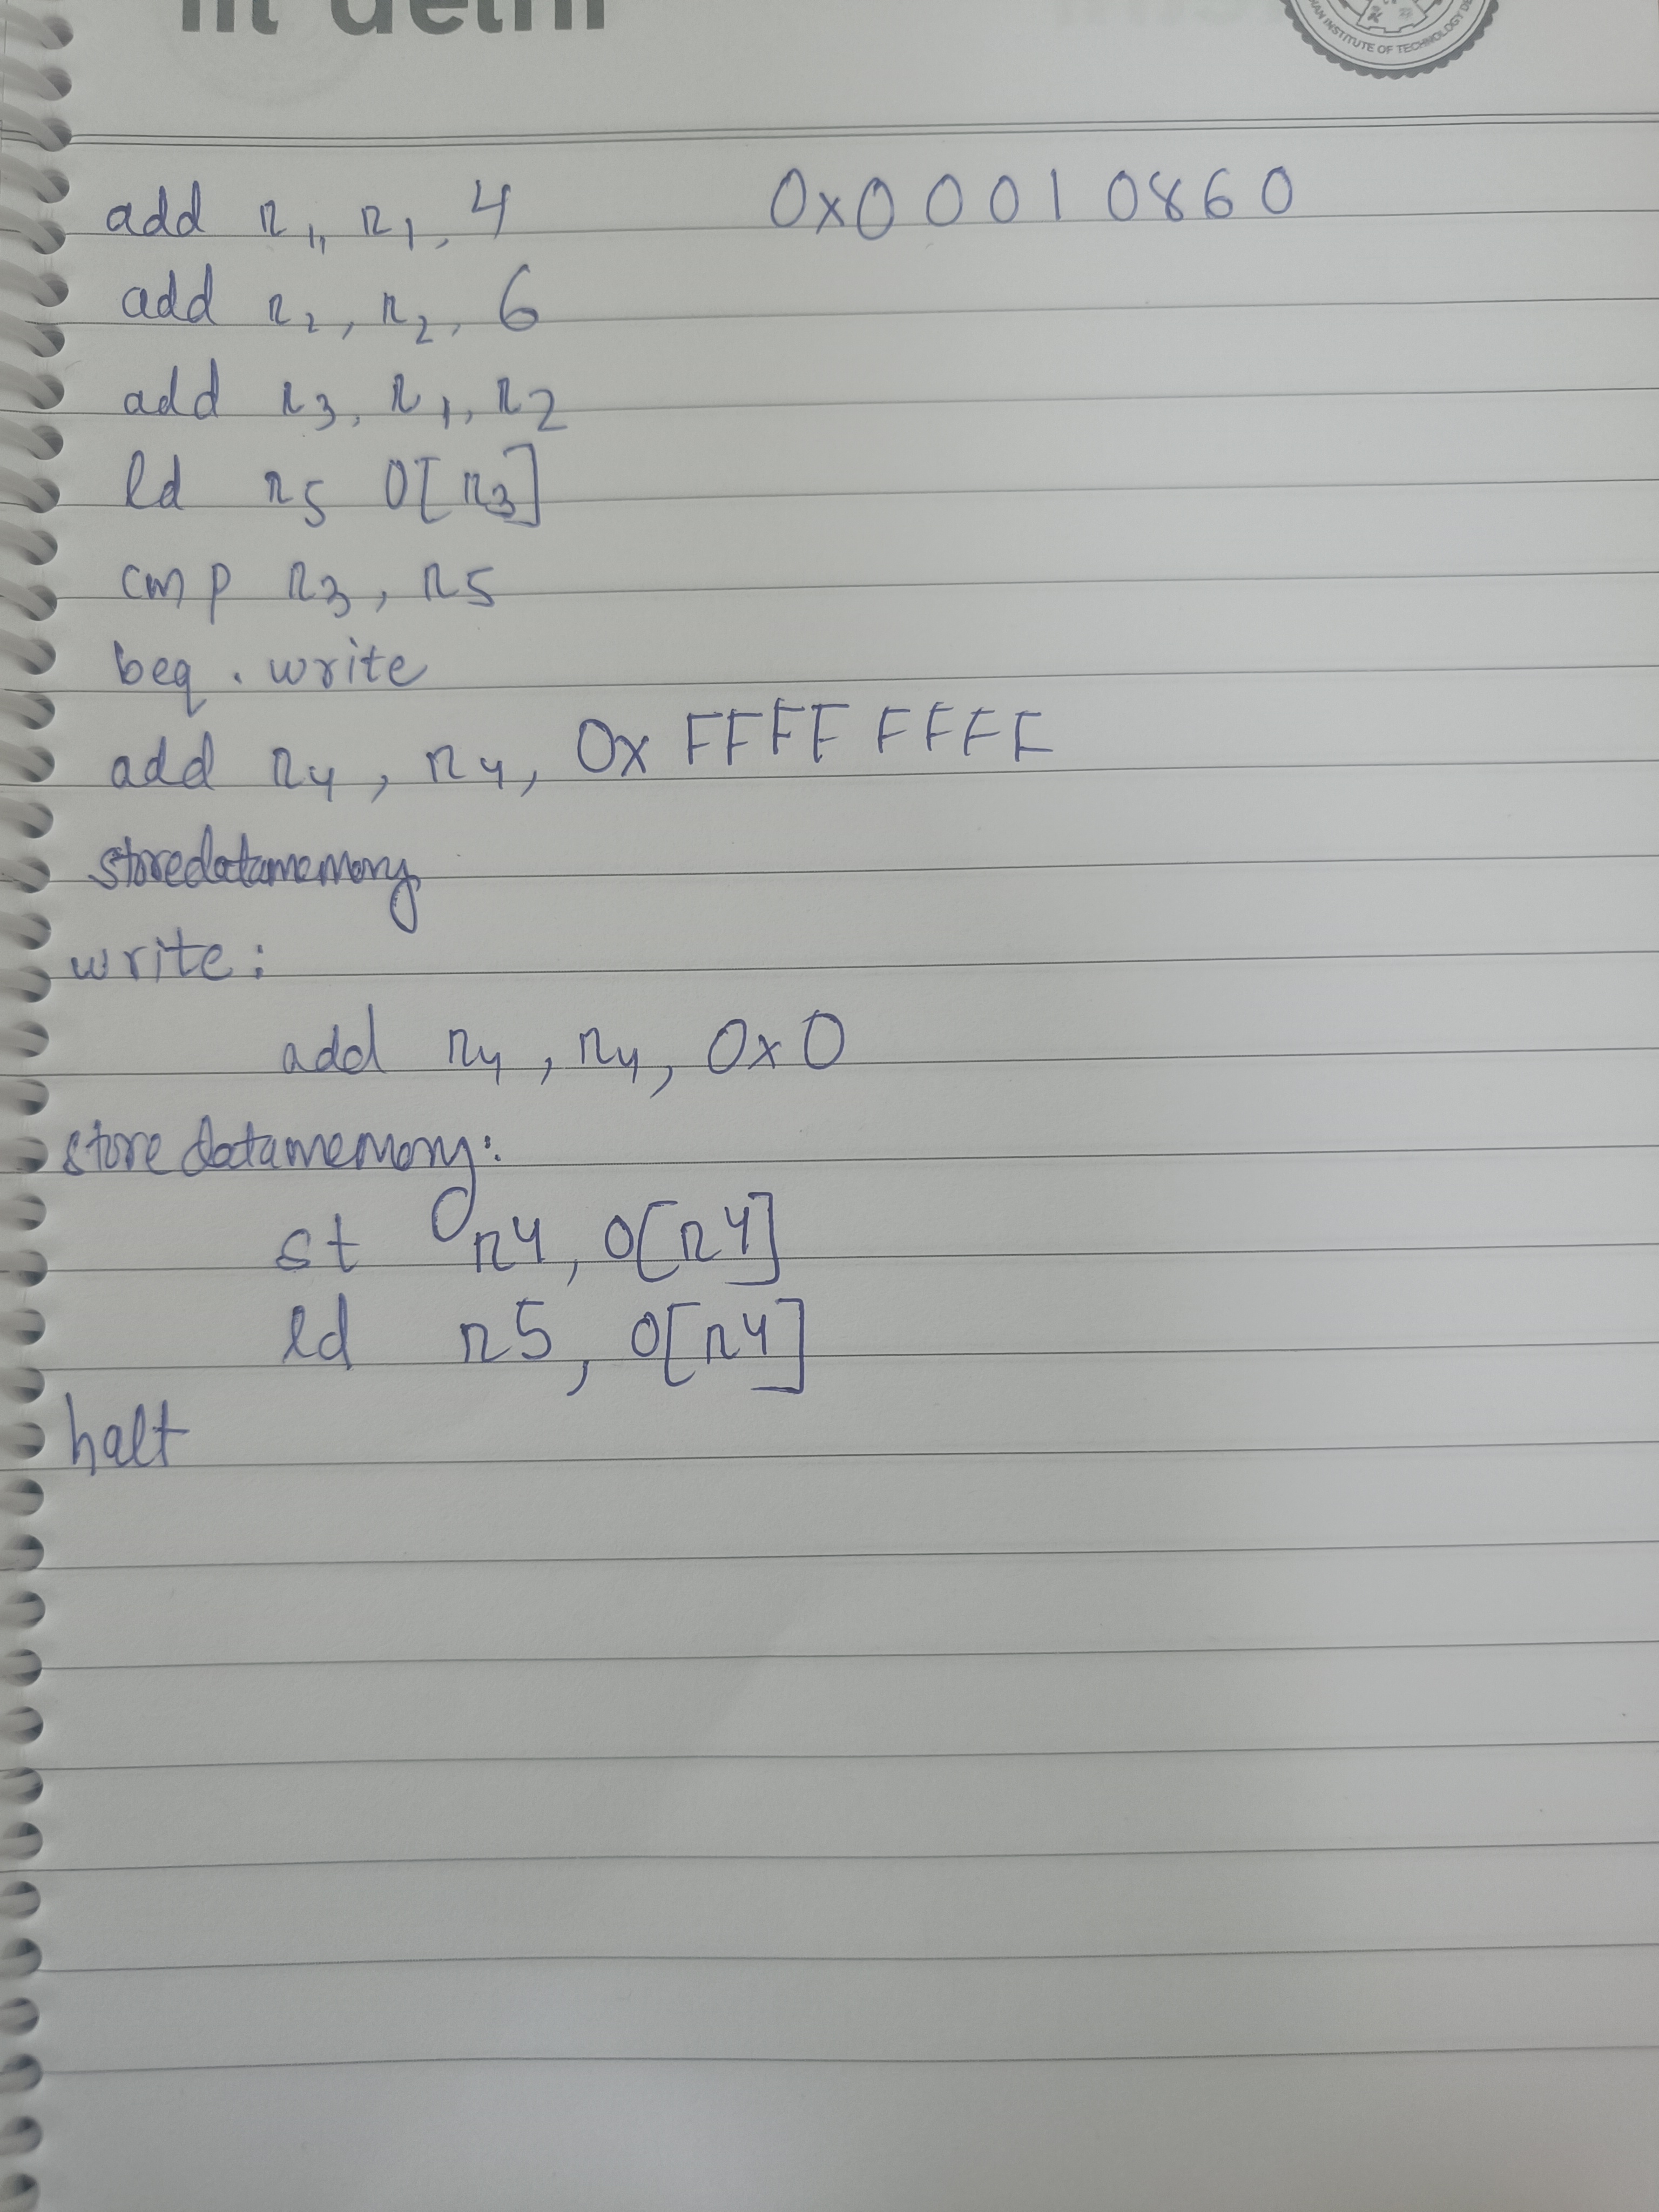 iit delhi
INSTITUTE OF TECHNOLOGY
add r1, r1, 4 0x00010860
add r2, r2, 6
add r3, r1, r2
ld r5 0[r3]
cmp r3, r5
beq .write
add r4, r4, 0x FFFF FFFF
storedatamemory
write:
add r4, r4, 0x0
storedatamemory:
st r4, 0[r4]
ld r5, 0[r4]
halt